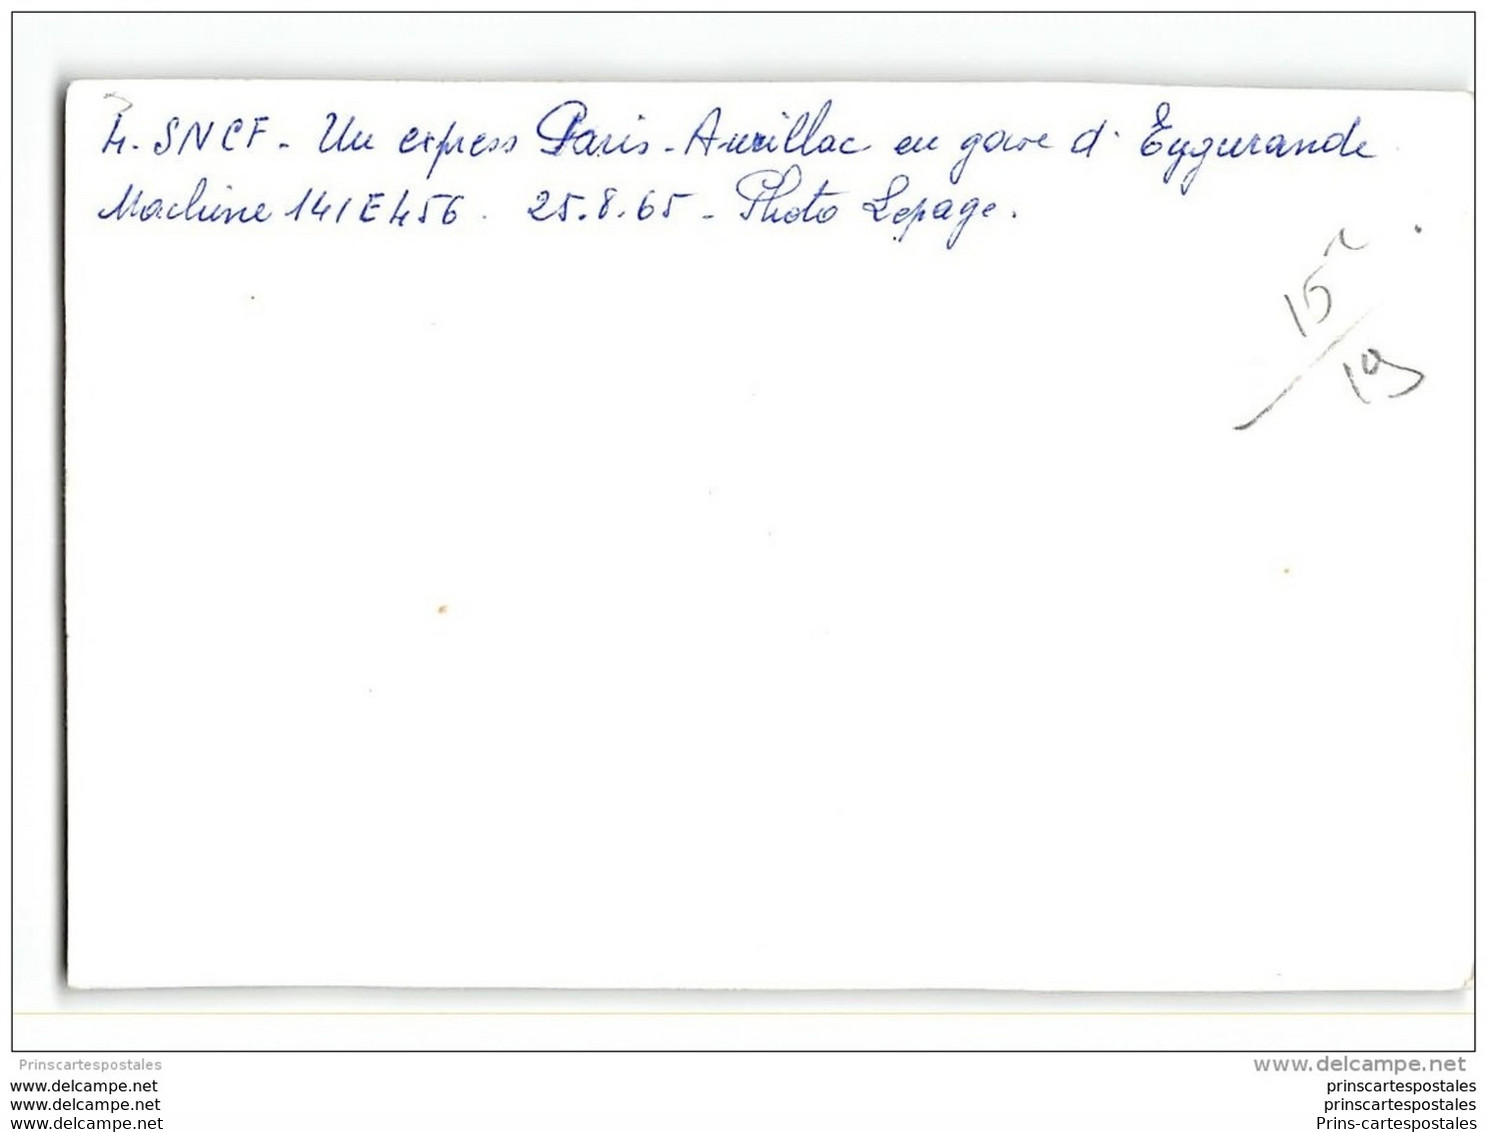 4. SNCF - Un express Paris - Aurillac en gare d'Eygurande
Machine 141E456. 25.8.65 - Photo Lepage.
15
19
Prinscartespostales
www.delcampe.net
www.delcampe.net
www.delcampe.net
www.delcampe.net
prinscartespostales
prinscartespostales
Prins-cartespostales